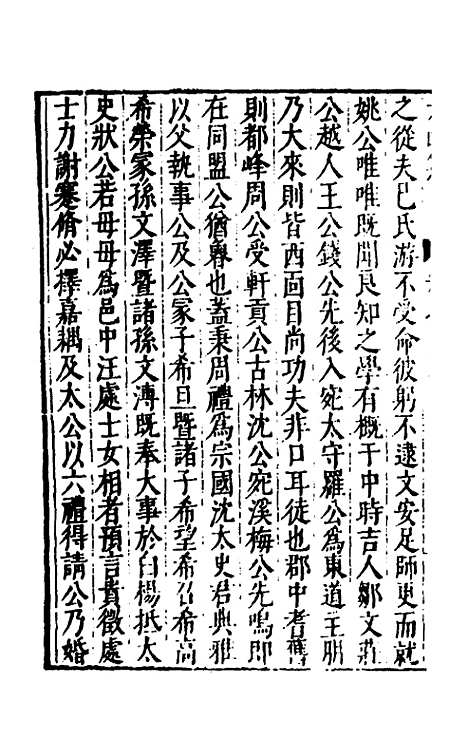 之從夫巴氏游不受命彼躬不逮文安足師更而就
姚公唯唯既聞良知之學有概于中時吉人鄒文莊
公越人王公錢公先後入宛太守羅公為東道主朋
乃大來則皆西面目尚功夫非口耳徒也郡中耆舊
則都峰周公受軒貢公古林沈公宛溪梅公先鳴即
在同盟公猶魯也蓋秉周禮為宗國沈太史君典雅
以父執事公及公家子希旦暨諸子希望希召希高
希榮家孫文澤暨諸孫文溥既奉大事於白楊抵太
史狀公若母母為邑中汪處士女相者預言貴徵處
士力謝蹇脩必擇嘉耦及太公以六禮得請公乃婚